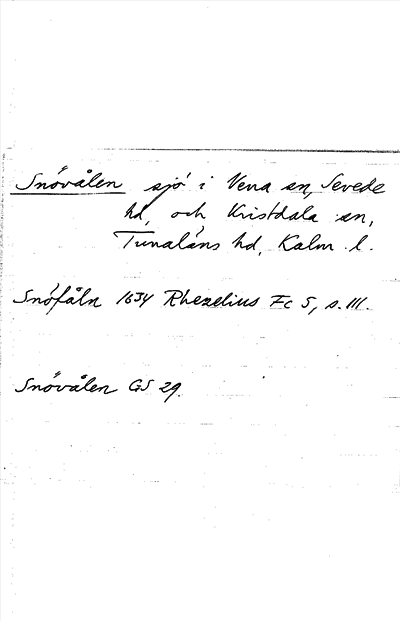 Snövålen sjö i Vena sn, Sevede
hd, och Kristdala sn,
Tunaläns hd, Kalm. l.
Snöfåln 1634 Rhezelius Fc 5, s. 111.
Snövålen GS 29.